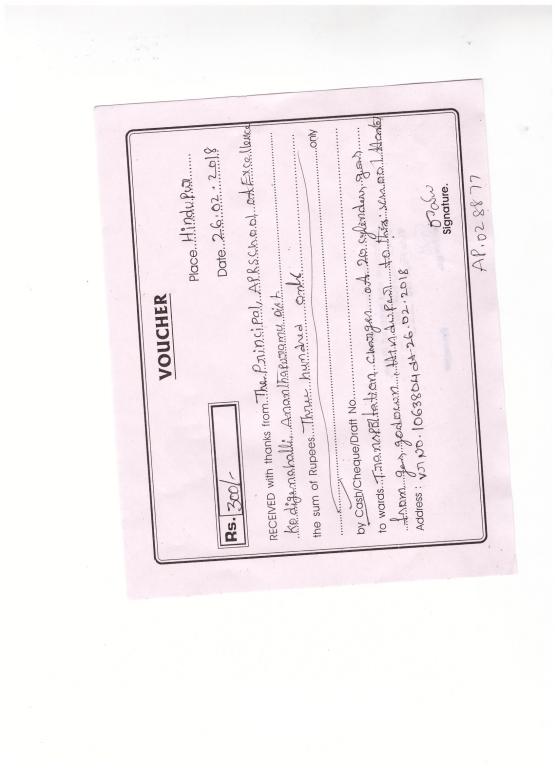 VOUCHER
Rs. 300/-
Place Hindupur
Date 26.02.2018
RECEIVED with thanks from The Principal, APRSchool of Excellence
Kodigenahalli, Ananthapuramu dist.
the sum of Rupees Three hundred only
only
by Cash/Cheque/Draft No.
to wards Transpotation charges of 20 cylenders gas
from gas godown Hindupur to this school
Address : VR NO. 1063804 dt 26.02.2018
Signature.
AP.02 8877